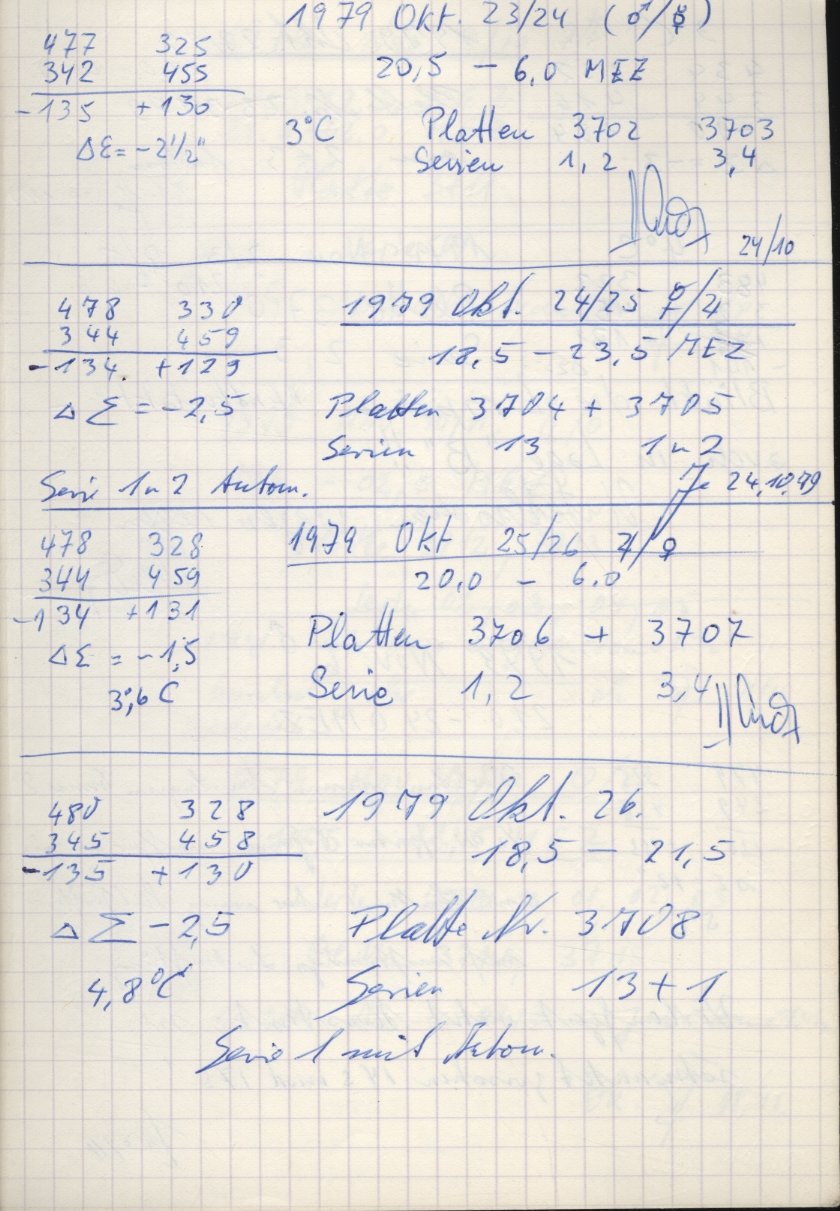 1979 Okt. 23/24 (♂/☿)
477 325
342 455
-135 +130
20,5 – 6,0 MEZ
ΔΣ = -2 1/2"
3°C
Platten 3702 3703
Serien 1, 2 3, 4
24/10
478 330
344 459
-134. +129
1979 Okt. 24/25 ☿/♃
18,5 – 23,5 MEZ
Δ Σ = -2,5
Platten 3704 + 3705
Serien 13 1 u 2
Serie 1 u 2 Autom.
24.10.79
478 328
344 459
-134 +131
1979 Okt 25/26 ♃/♀
20,0 – 6,0
ΔΣ = -1,5
3°,6 C
Platten 3706 + 3707
Serie 1, 2 3, 4
480 328
345 458
-135 +130
1979 Okt. 26.
18,5 – 21,5
Δ Σ -2,5
Platte Nr. 3708
4,8°C
Serien 13 + 1
Serie 1 mit Autom.